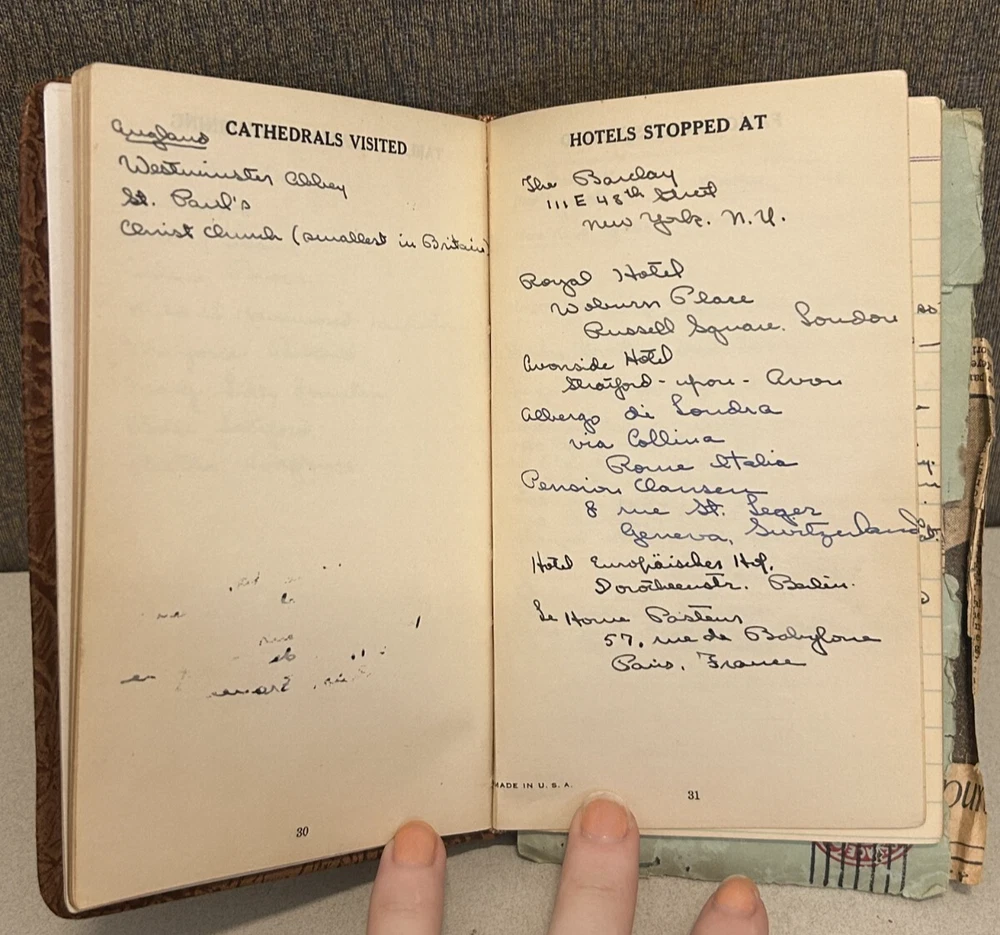 CATHEDRALS VISITED
England
Westminster Abbey
St. Paul's
Christ Church (smallest in Britain)
30
HOTELS STOPPED AT
The Barclay
111 E 48th Street
New York. N.Y.
Royal Hotel
Woburn Place
Russell Square. London
Avonside Hotel
Stratford-upon-Avon
Albergo di Londra
via Collina
Rome Italia
Pension Clausen
8 rue St. Leger
Geneva, Switzerland
Hotel Europäisches Hof,
Dorotheenstr. Berlin.
Le Home Pasteur
57, rue de Babylone
Paris, France
MADE IN U. S. A.
31